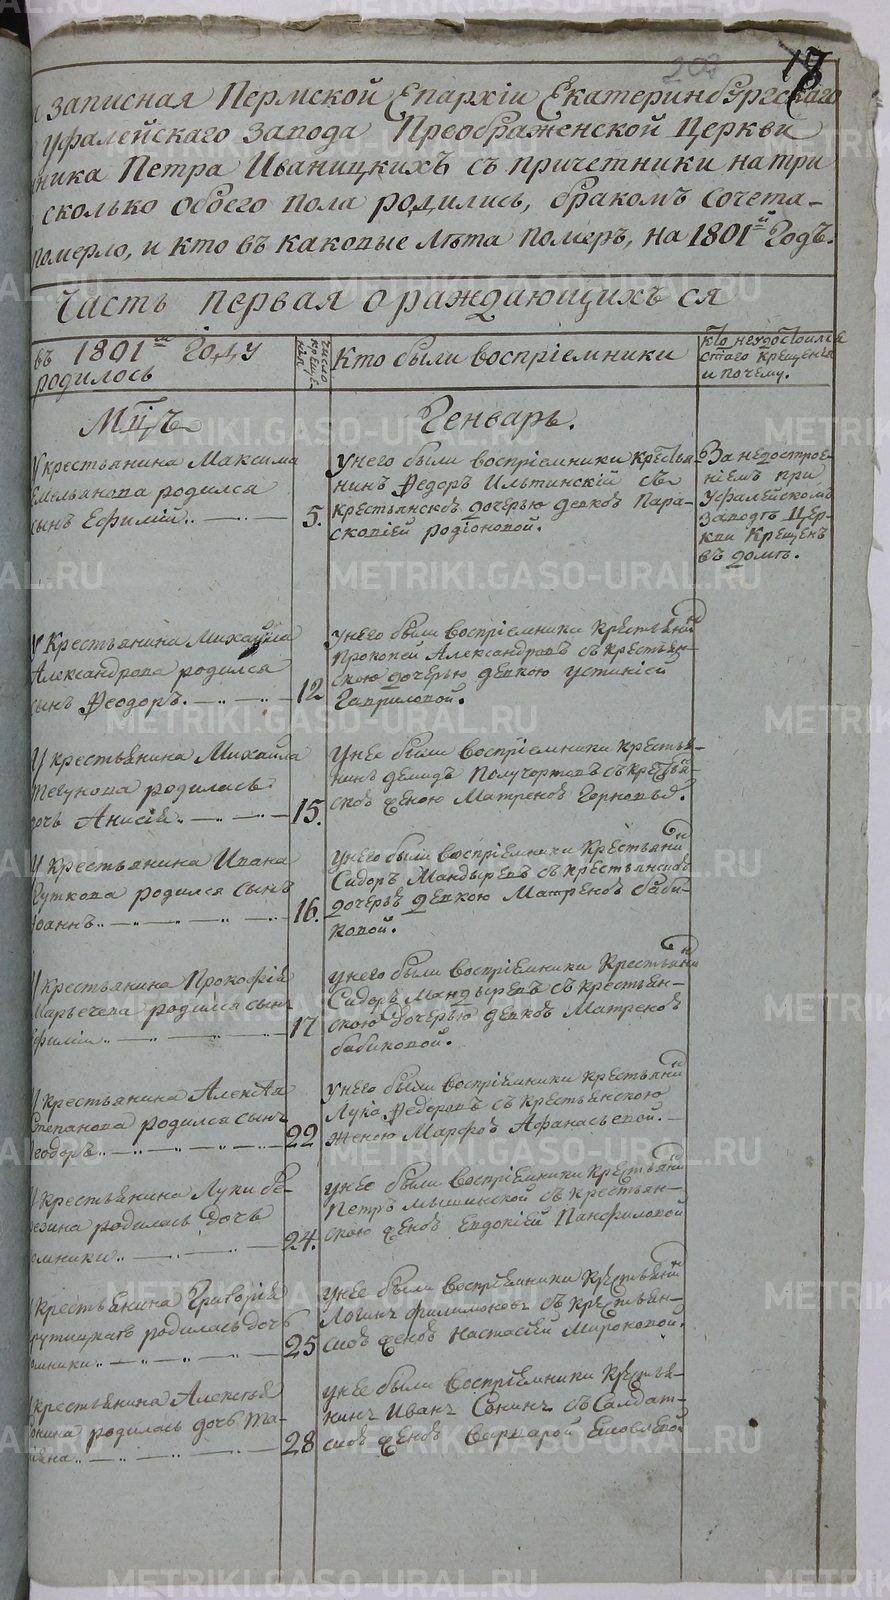 207 17
записная Пермской Епархіи Екатеринбургскаго
Уфалейскаго завода Преображенской Церкви
ника Петра Иваницкихъ съ причетники на три
сколько обоего пола родились, бракомъ сочета-
померло, и кто въ каковые лѣта померъ, на 1801й Годъ.
Часть первая о раждающихъ ся
въ 1801м Году
родилось
число крещенія
Кто были воспріемники
кто неудостоился
стаго крещенія
и почему.
Мцъ Генварь.
У крестьянина Максима
Емельянова родился
сынъ Ефимій
5.
у него были воспріемники крестья-
нинъ Федоръ Ильтинскій съ
крестьянскою дочерью девкою Пара-
скопіей родіоновой.
За недострое-
ніемъ при
Уфалейскомъ
заводѣ Цер-
кви Крещенъ
въ домѣ.
У Крестьянина Михайла
Александрова родился
сынъ Феодоръ.
12
у него были воспріемники крестьянинъ
Прокопей Александровъ съ крестьян-
скою дочерью девкою устиніей
Гавриловой.
У крестьянина Михайла
Тегунова родилась
дочь Анисія.
15.
у нее были воспріемники крестья-
нинъ демидъ Получортовъ съ крестья-
скою женою Матреною Горновыхъ.
У крестьянина Ивана
Гуткова родился сынъ
Іоаннъ
16.
у него были воспріемники крестьянинъ
Сидоръ Мандыревъ съ крестьянскою
дочерью девкою Матреною баби-
ковой.
У крестьянина Прокофія
Марьечева родился сынъ
Ефимій
17
у него были воспріемники Крестьянинъ
Сидоръ Мандыревъ съ крестьян-
скою дочерью девкою Матреною
бабиковой.
У крестьянина Алексѣя
Степанова родился сынъ
Феодоръ
22
у него были воспріемники крестьянинъ
Лука Федоровъ съ крестьянскою
женою Марфою Афанасьевой.
У крестьянина Луки бе-
резина родилась дочь
Домники
24.
у нее были воспріемники крестьянинъ
Петръ мышинской съ крестьян-
скою женою Евдокіей Панфиловой
У крестьянина Григорія
Крутицкаго родилась дочь
Домники
25
у нее были воспріемники крестьянинъ
Логинъ филимоновъ съ крестьян-
скою женою настасіей Мироновой.
У крестьянина Алексѣя
Сонина родилась дочь Та-
тіяна
28
у нее были воспріемники крестья-
нинъ Иванъ Сонинъ съ Салдат-
скою женою Варварой
METRIKI.GASO-URAL.RU